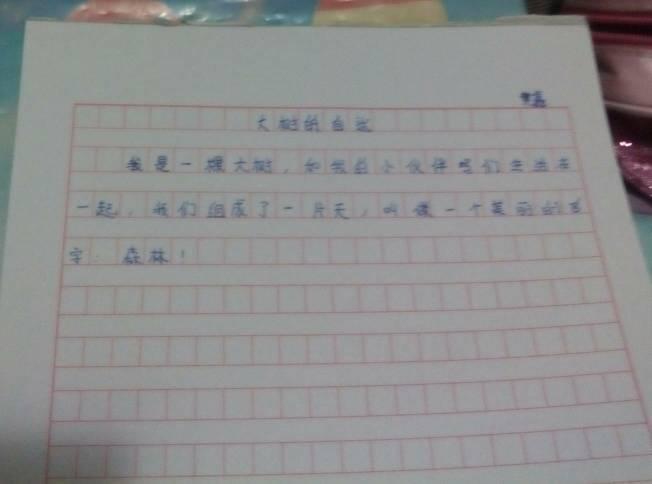 大树的自述
我是一棵大树，和我的小伙伴们生活在
一起，我们组成了一片天，叫做一个美丽的名
字：森林！